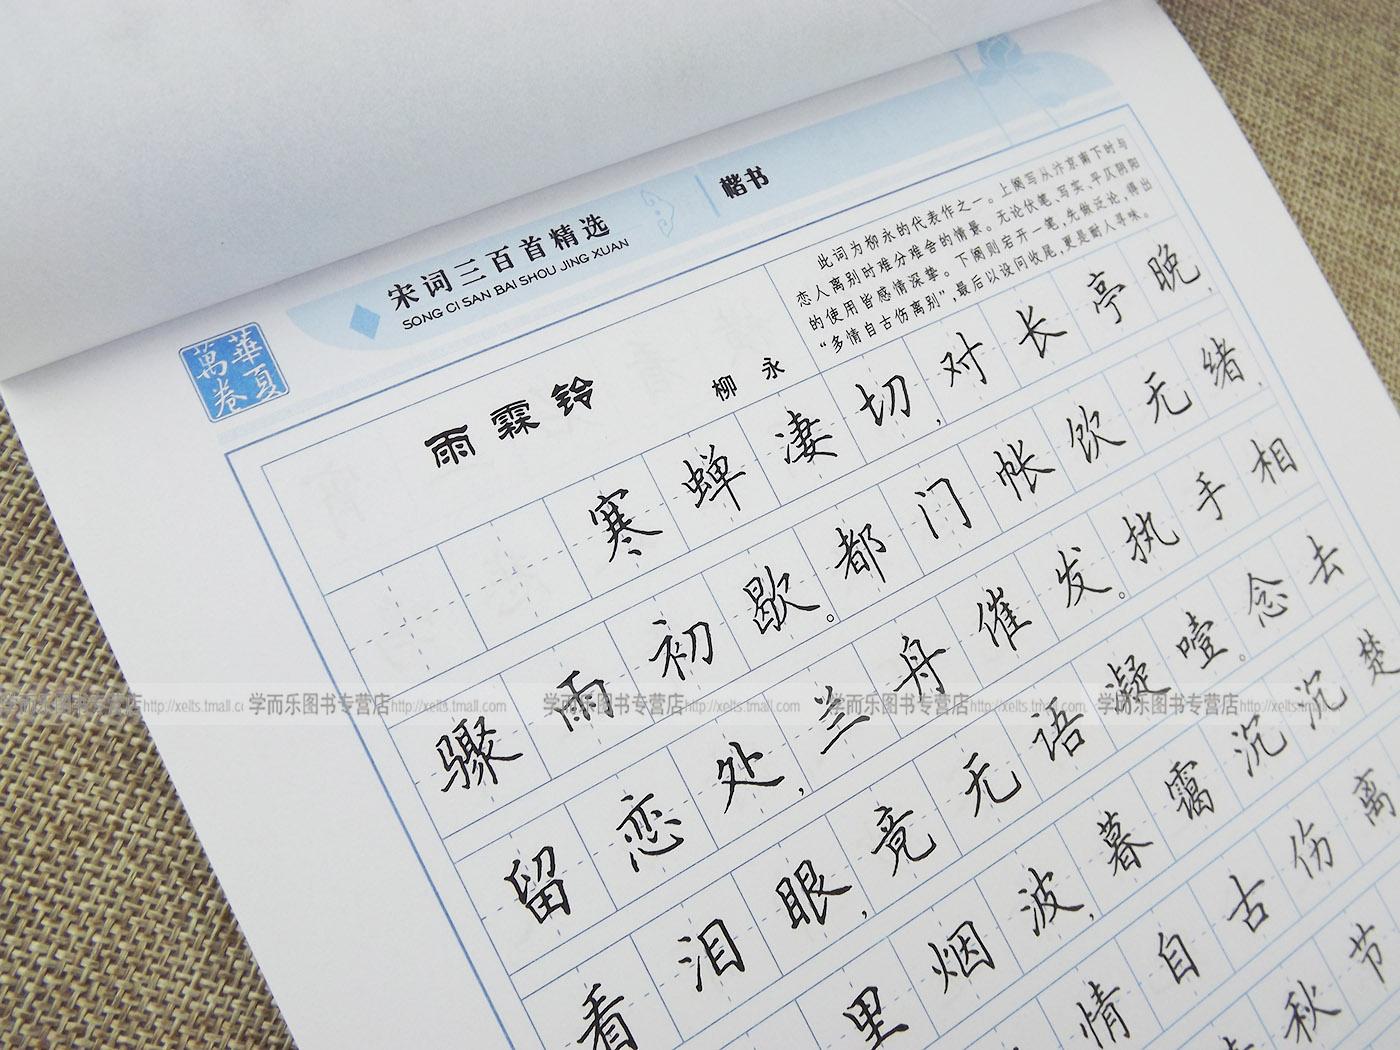 宋词三百首精选
SONG CI SAN BAI SHOU JING XUAN
楷书
華夏
萬卷
雨霖铃
柳永
此词为柳永的代表作之一。上阕写从汴京南下时与
恋人离别时难分难舍的情景。无论伏笔、写实、平仄阴阳
的使用皆感情深挚。下阕则宕开一笔,先做泛论,得出
“多情自古伤离别”,最后以设问收尾,更是耐人寻味。
寒蝉凄切,对长亭晚,
骤雨初歇。都门帐饮无绪,
留恋处,兰舟催发。执手相
看泪眼,竟无语凝噎。念去
里烟波,暮霭沉沉楚
情自古伤离
秋节
学而乐图书专营店http://xelts.tmall.com
学而乐图书专营店http://xelts.tmall.com
学而乐图书专营店http://xelts.tmall.com